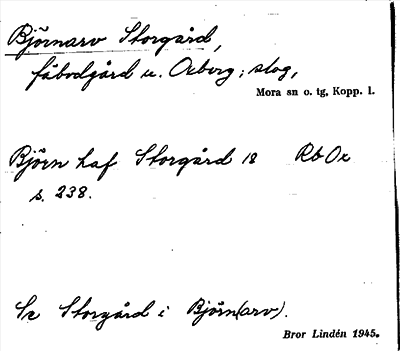 Björnarv Storgård,
fäbodgård u. Oxberg; skog,
Mora sn o. tg, Kopp. l.
Björn haf Storgård 18 Rb Ox
s. 238.
Se Storgård i Björn(arv).
Bror Lindén 1945.